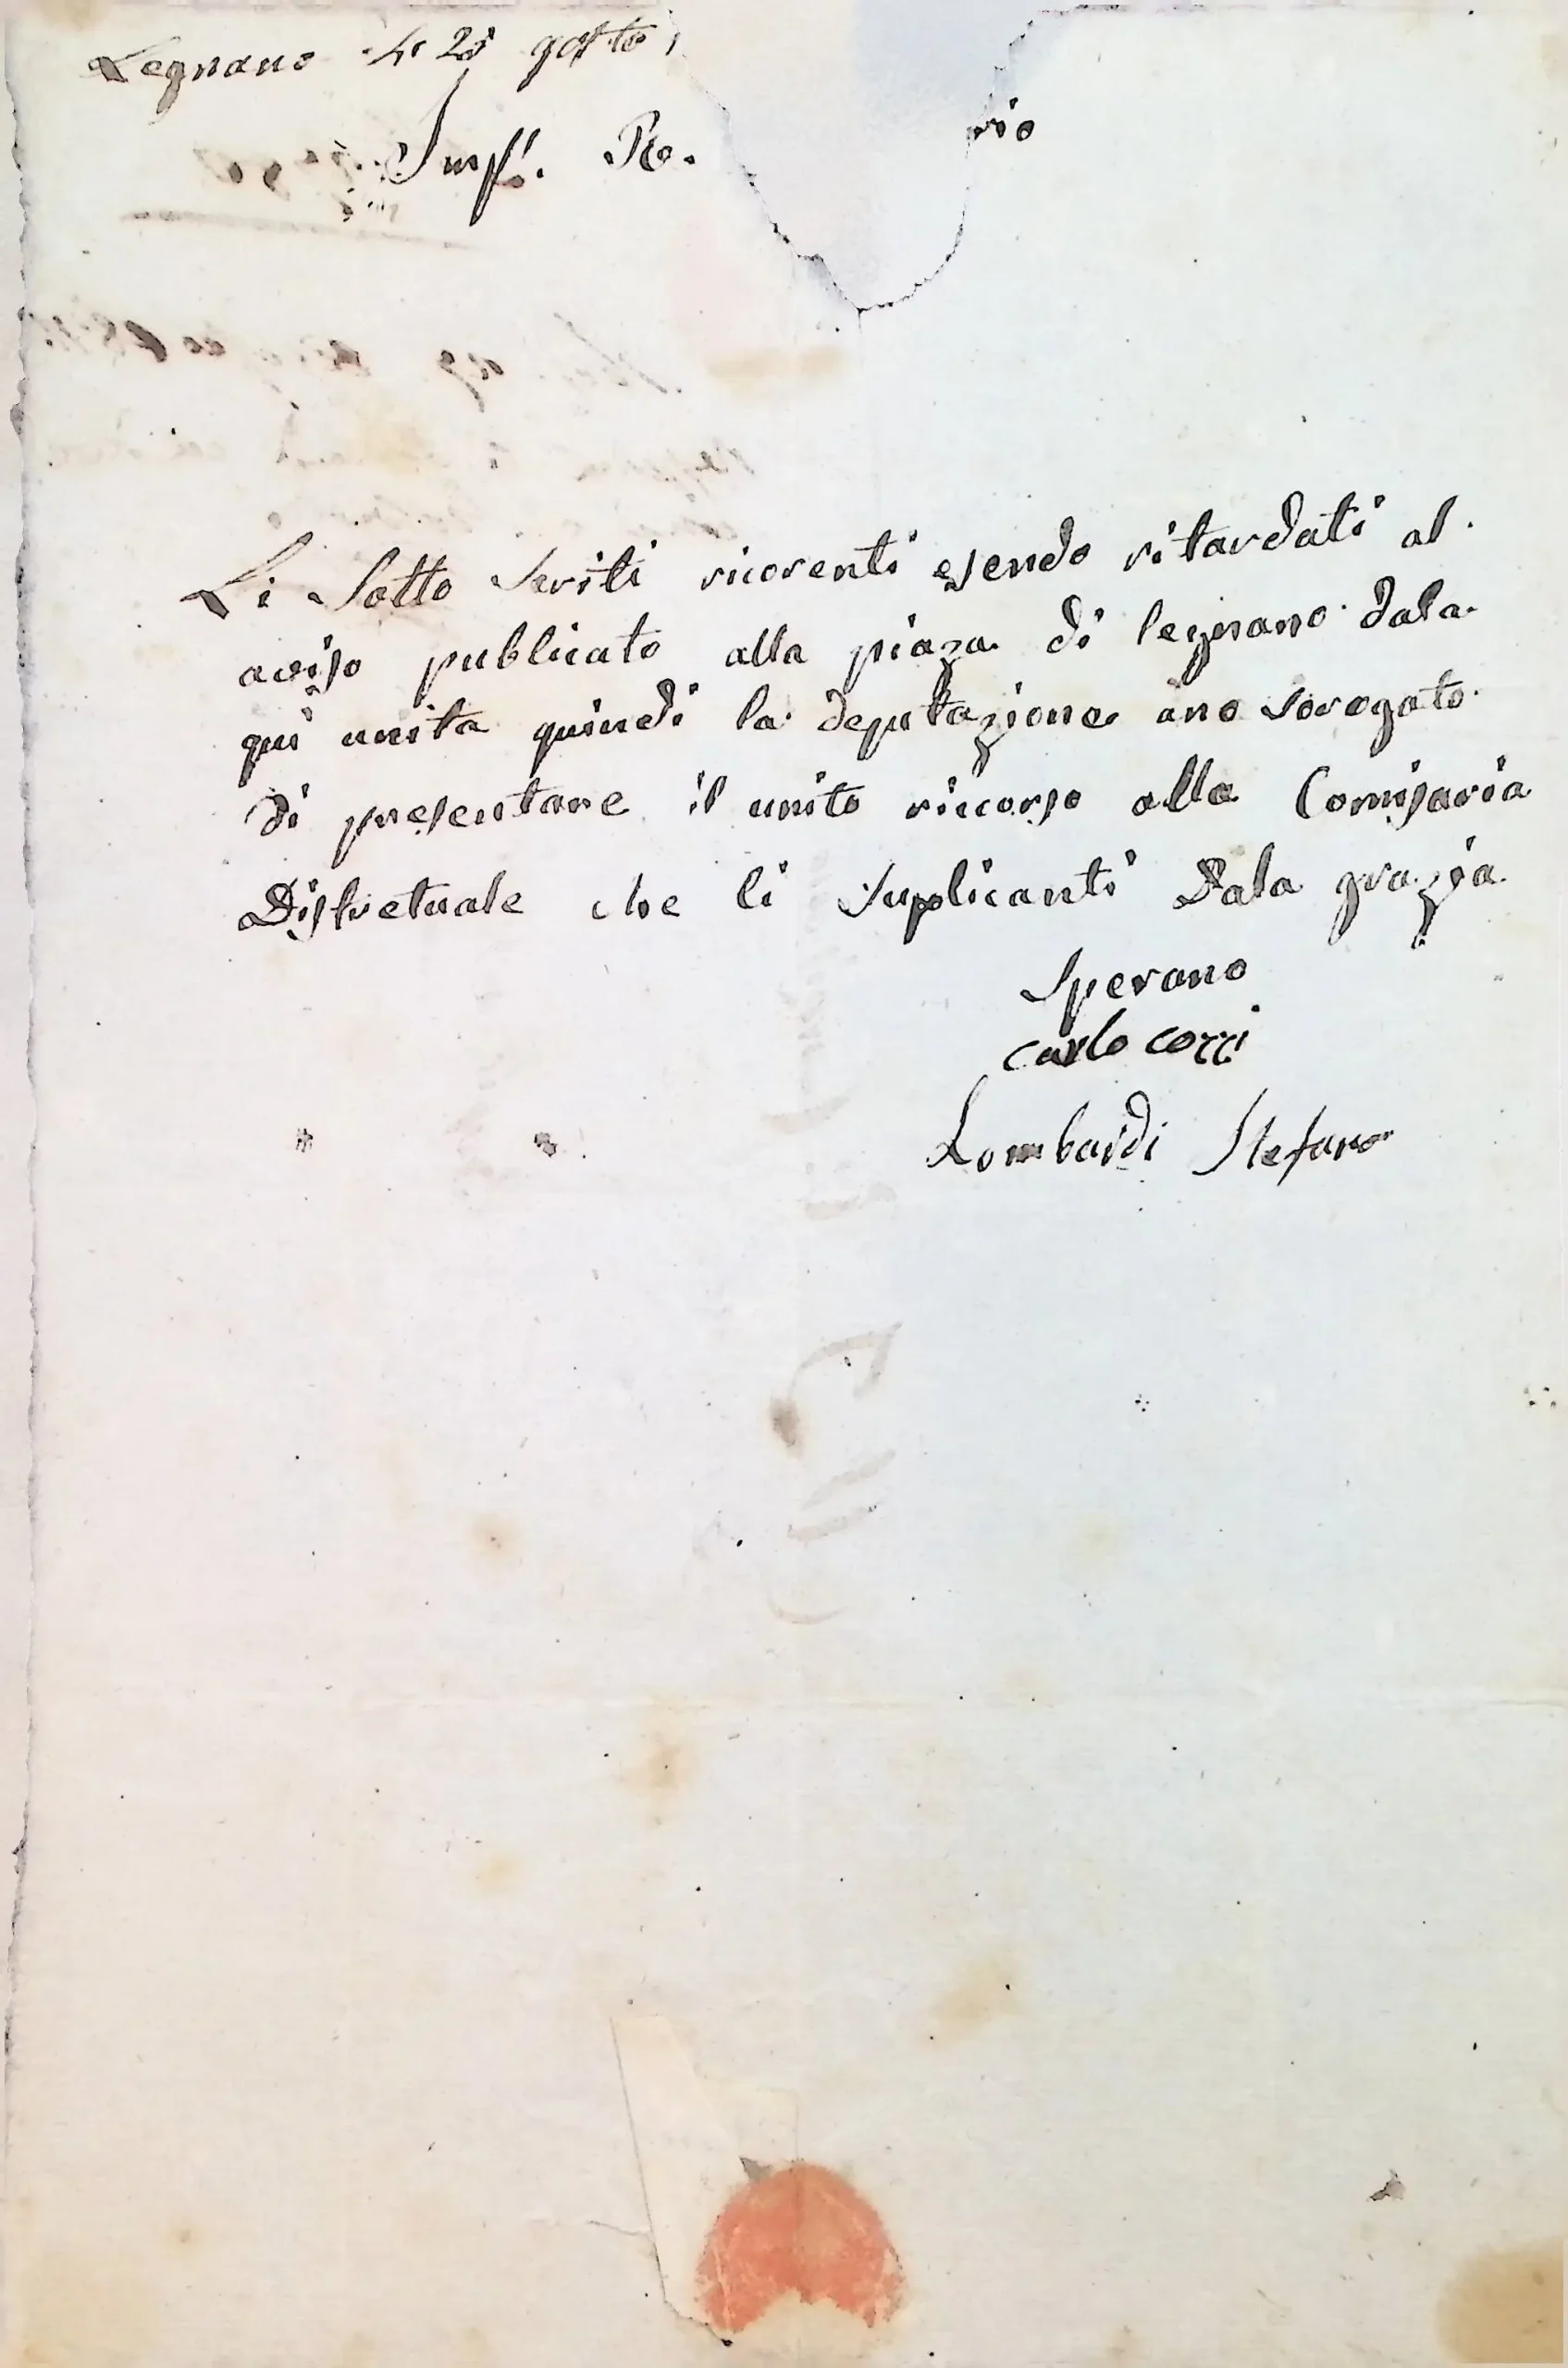 Legnano Li 25 gosto
Imp. Re. rio
Li Sotto Scriti ricorenti esendo ritardati al
aviso publicato alla piaza di legnano dala
qui unita quindi la deputazione ano sorogato
di presentare il unito riccorso alla Comisaria
Distretuale che li Suplicanti Dala grazia
Sperano
Carlo Cozzi
Lombardi Stefano